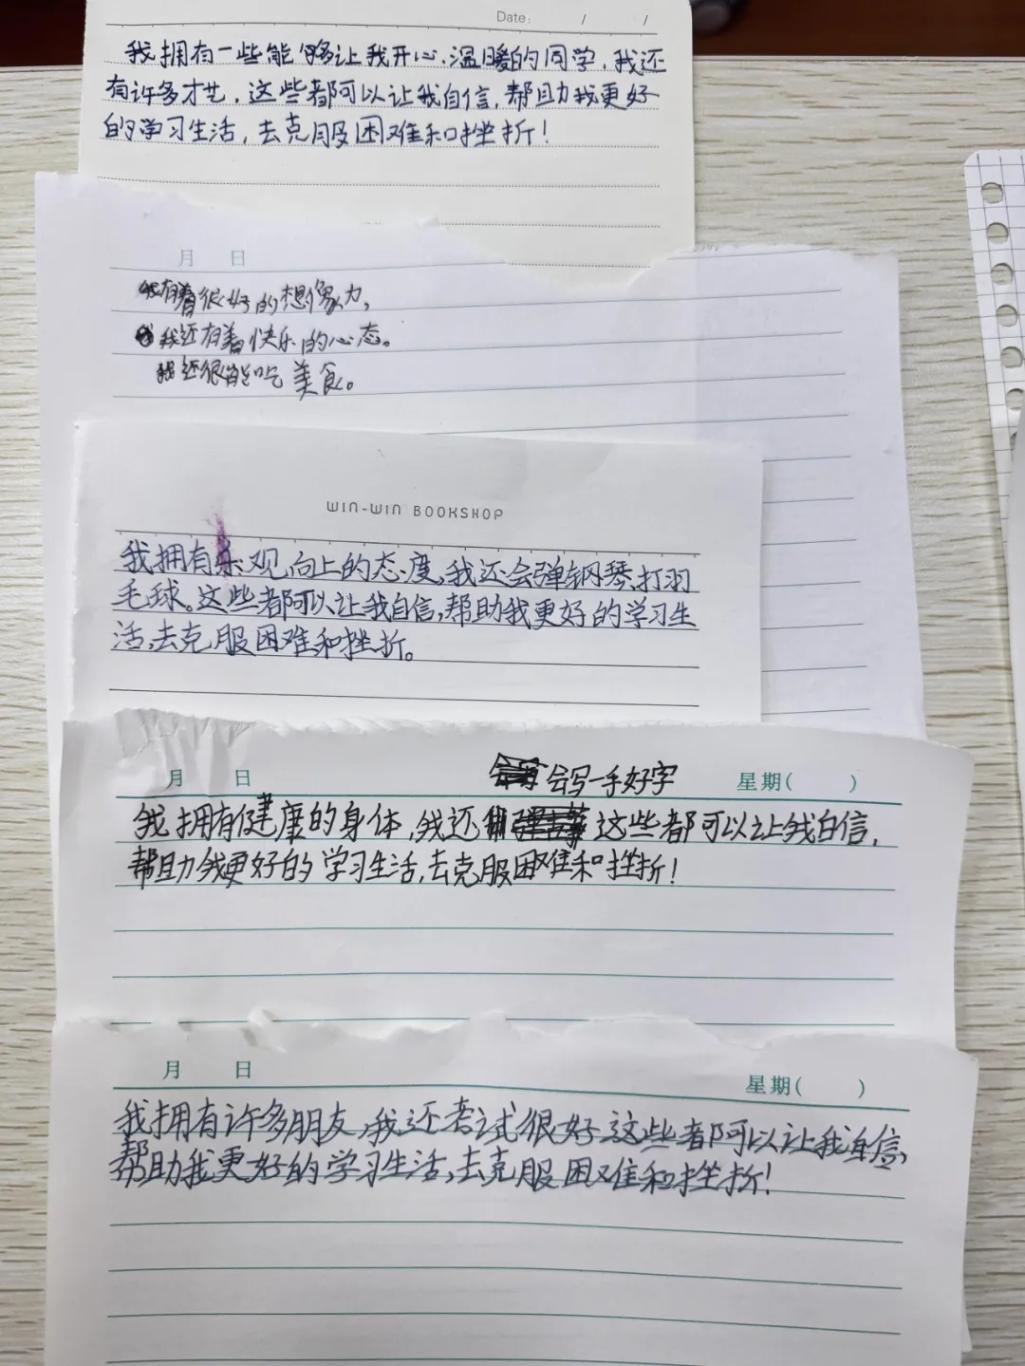 Date: / /
我拥有一些能够让我开心、温暖的同学，我还
有许多才艺，这些都可以让我自信，帮助我更好
的学习生活，去克服困难和挫折！
月 日
我有着很好的想像力，
我还有着快乐的心态。
我还很能吃美食。
WIN-WIN BOOKSHOP
我拥有乐观向上的态度，我还会弹钢琴、打羽
毛球。这些都可以让我自信，帮助我更好的学习生
活，去克服困难和挫折。
月 日 会写一手好字 星期( )
我拥有健康的身体，我还 这些都可以让我自信，
帮助我更好的学习生活，去克服困难和挫折！
月 日 星期( )
我拥有许多朋友，我还考试很好，这些都可以让我自信，
帮助我更好的学习生活，去克服困难和挫折！